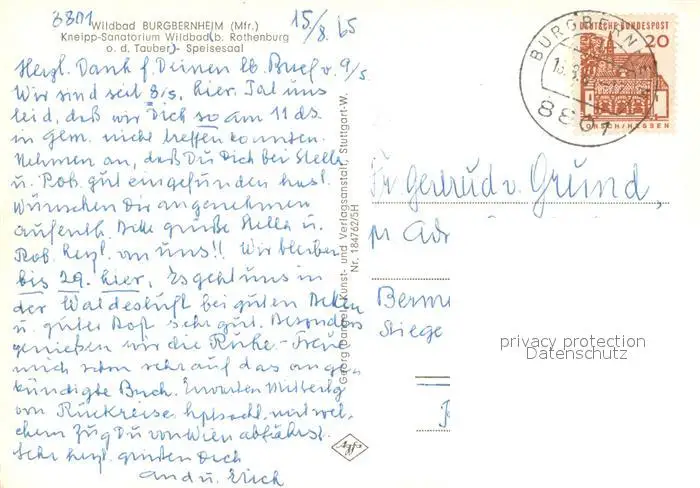 8801
15/8.65
Wildbad BURGBERNHEIM (Mfr.)
Kneipp-Sanatorium Wildbad b. Rothenburg
o. d. Tauber - Speisesaal
Herzl. Dank f. Deinen lb. Brief v. 9/5.
Wir sind seit 8/s. hier. Tat uns
leid, daß wir Dich so am 11 ds.
in Gem. nicht treffen konnten.
Nehmen an, daß Du Dich bei Stella
u. Rob. gut eingefunden hast.
Wünschen Dir angenehmen
Aufenth. Bitte grüße Stella u.
Rob. herzl. von uns!! Wir bleiben
bis 29. hier. Es geht uns in
der Waldesluft bei guten Betten
u. guter Kost sehr gut. Besonders
genießen wir die Ruhe. - Freue
mich schon sehr auf das ange-
kündigte Buch. Erwarten Mitteilg
von Rückreise hptsächl. mit wel-
chem Zug Du von Wien abfährst.
Sehr herzl. grüßen Dich
und Erich
Georg Dangel, Kunst- und Verlagsanstalt, Stuttgart-W.
Nr. 184762/5H
Agfa
BURGBERNHEIM
8801
DEUTSCHE BUNDESPOST
20
LORSCH/HESSEN
Fr. Gertrud v. Grund,
Adr
Berm
Stiege
privacy protection
Datenschutz